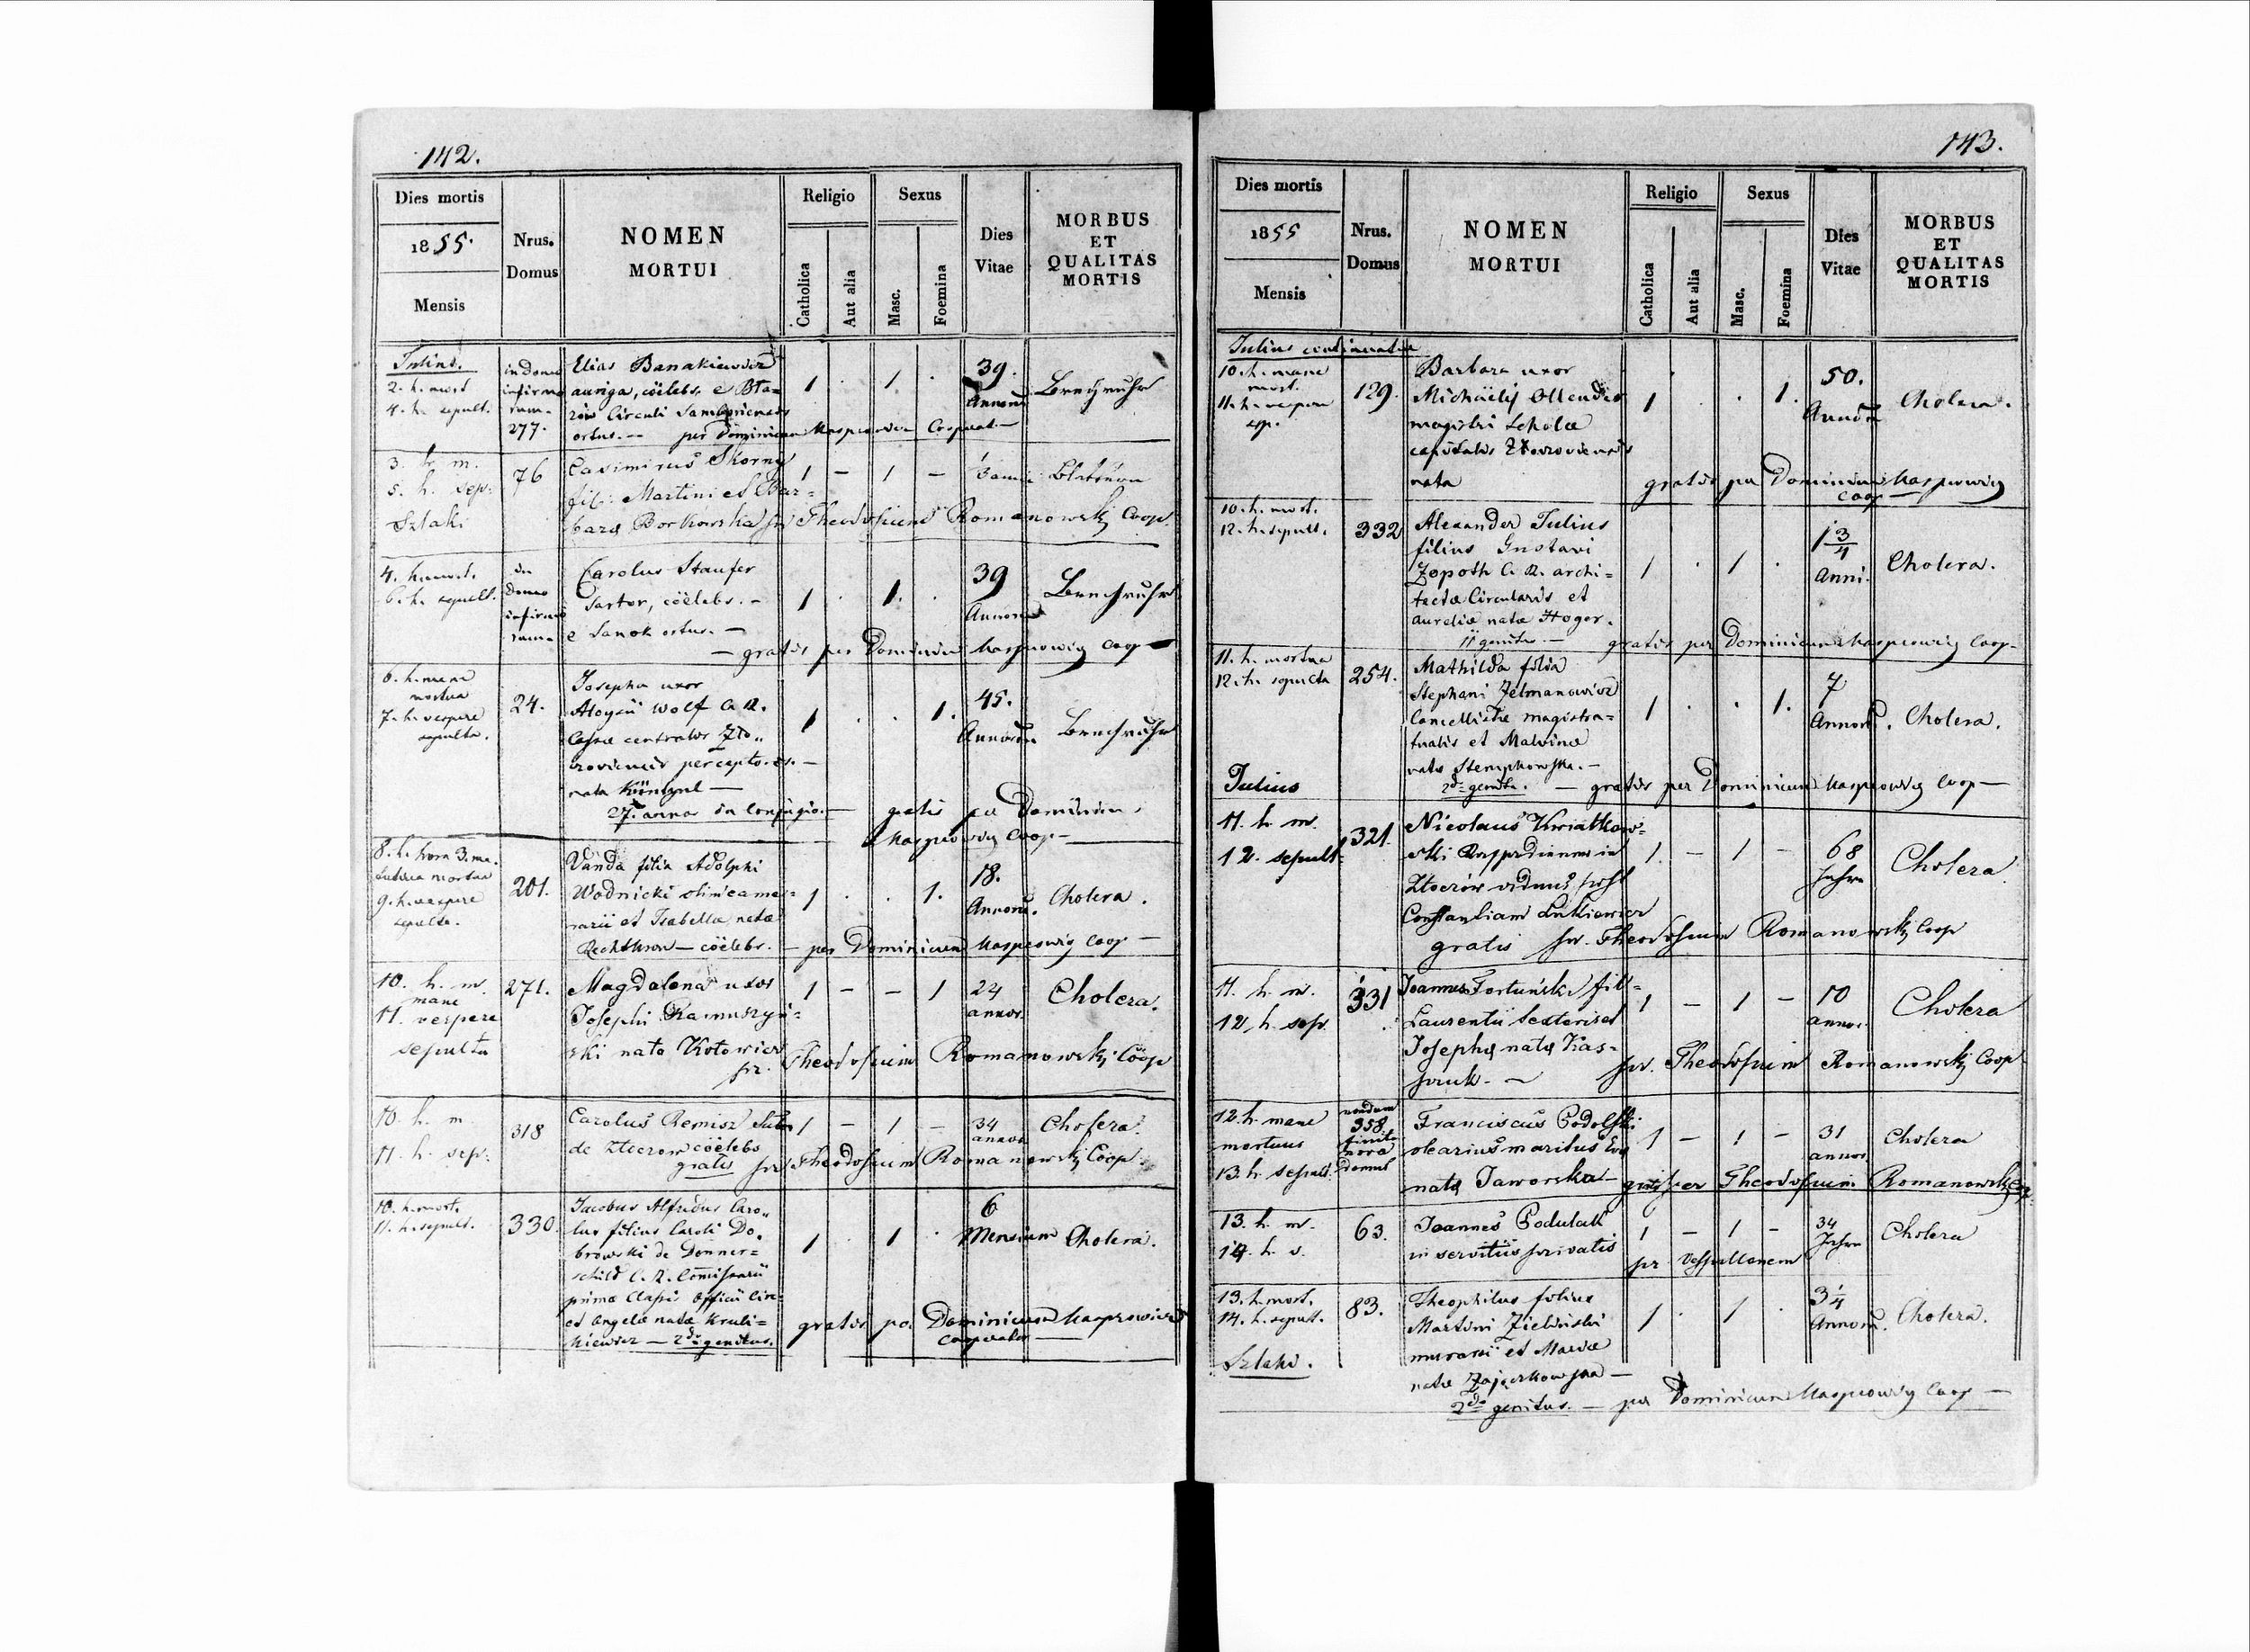 142.
Dies mortis
1855.
Mensis
Nrus.
Domus
NOMEN
MORTUI
Religio
Catholica
Aut alia
Sexus
Masc.
Foemina
Dies
Vitae
MORBUS
ET
QUALITAS
MORTIS
Julius.
2. h. mort
4. h. sepult.
in domo
infirmo
rum.
277.
Elias Banakiewicz
auriga, cölebs. e
Circuli Samboriensis
ortus. — per Dominicum Cooperat—
1 . 1 .
39.
Annoru
Brechruhr
3. h. m.
5. h. sep:
Szlaki
76
Casimirus Skorny
fil: Martini et Bar=
bara Borkowska pr Theodosium Romanowskj Coop.
1 – 1 –
4. h. mort.
6. h. sepult.
in
domo
infirmo
rum
Carolus Staufer
Sartor, cölebs. –
e Sanok ortus. —
1 . 1. .
39
Annoru
Brechruhr
– gratis per Dominicum Coop –
6. h. mane
mortua
7. h. vespere
sepulta.
24.
Josepha uxor
Aloysii Wolf C. R.
Cassae centralis Zło„
czoviensis perceptoris. –
nata
27. annos in Conjugio. — gratis per Dominicum
Coop –
1 . . 1.
45.
Annoru
Brechruhr
8. h. hora 3. ma.
tutina mortua
9. h. vespere
sepulta.
201.
Vanda filia Adolphi
Wodnicki
et Isabella nata
— cölebs. – per Dominicum Coop —
1 . . 1.
18.
Annoru.
Cholera.
10. h. m.
mane
11. vespere
sepulta
271.
Magdalena uxor
Josephi
ski nata Kotowicz
pr. Theodosium Romanowskj Coop
1 – – 1
24
annor.
Cholera.
10. h. m.
11. h. sep:
318
Carolus Remisz
de Złoczow cölebs
gratis pr Theodosium Romanowskj Coop.
1 – 1 –
34
annor
Cholera.
10. h. mort.
11. h. sepult.
330.
Jacobus Alfredus Caro„
lus filius Caroli Do„
browski de Donner=
schild C. R. Comissarii
primae Classis Officii Circ
et Angelae nata Kruli=
kiewicz — 2do genitus.
1 . 1 .
6
Mensium
Cholera.
gratis per Dominicum
Cooperator
143.
Dies mortis
1855
Mensis
Nrus.
Domus
NOMEN
MORTUI
Religio
Catholica
Aut alia
Sexus
Masc.
Foemina
Dies
Vitae
MORBUS
ET
QUALITAS
MORTIS
Julius continuatur
10. h. mane
mort.
11. h. vespere
sep.
129.
Barbara uxor
Michaëlis
magistri Scholae
capitalis
nata
1 . . 1.
50.
Annoru
Cholera.
gratis per Dominicum
Coop
10. h. mort.
12. h. sepult.
332
Alexander Julius
filius Gustavi
Zopoth C. R. archi=
tectae Circularis et
Aureliae nata
genitus. — gratis per Dominicum Coop–
1 . 1 .
1 3/4
Anni.
Cholera.
11. h. mortua
12. h. sepulta
Julius
254.
Mathilda filia
Stephani Zelmanowicz
Cancellistae magistra=
tualis et Malvinae
nata Stempkowska. –
2do genita. — gratis per Dominicum Coop —
1 . . 1.
7
Annoru.
Cholera.
11. h. m.
12. sepult.
321.
Nicolaus Kwiatkow=
ski
Złoczów viduus post
Constantiam Lukiewicz
gratis pr. Theodosium Romanowskj Coop
1. – 1 –
68
Jahre
Cholera
11. h. m.
12. h. sep.
331
Joannes Fortuński fil=
Laurentii
Josepha nata Kas=
pruk. — pr. Theodosium Romanowskj Coop
1 – 1 –
10
annor.
Cholera
12. h. mane
mortuus
13. h. sepult.
nondum
358
finita
nova
domus
Franciscus Podolski
olearius maritus Eva
nata Jaworska – gratis per Theodosium Romanowskj
1 – 1 –
31
annor
Cholera
13. h. m.
14. h. s.
63.
Joannes Podulak
in servitiis privatis
pr Vespillonem
1 – 1 –
34
Jahre
Cholera
13. h. mort.
14. h. sepult.
Szlaki.
83.
Theophilus filius
Martini Zieliński
murarii et Mariae
nata Zajączkowska —
2do genitus. — per Dominicum Coop —
1 . 1 .
3 1/4
Annoru.
Cholera.